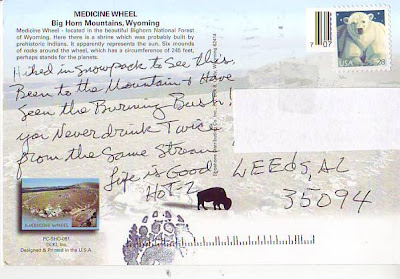 MEDICINE WHEEL
Big Horn Mountains, Wyoming
Medicine Wheel - located in the beautiful Bighorn National Forest
of Wyoming. Here there is a shrine which was probably built by
prehistoric Indians. It apparently represents the sun. Six mounds
of rocks around the wheel, which has a circumference of 245 feet,
perhaps stands for the planets.
Hiked in snowpack to See this.
Been to the Mountain & Have
Seen the Burning Bush!
you Never drink Twice
from the Same Stream
Life is Good
HOT-Z
MEDICINE WHEEL
PC-SHC-081
Designed & Printed in the U.S.A.
707
USA
28
LEEDS, AL
35094